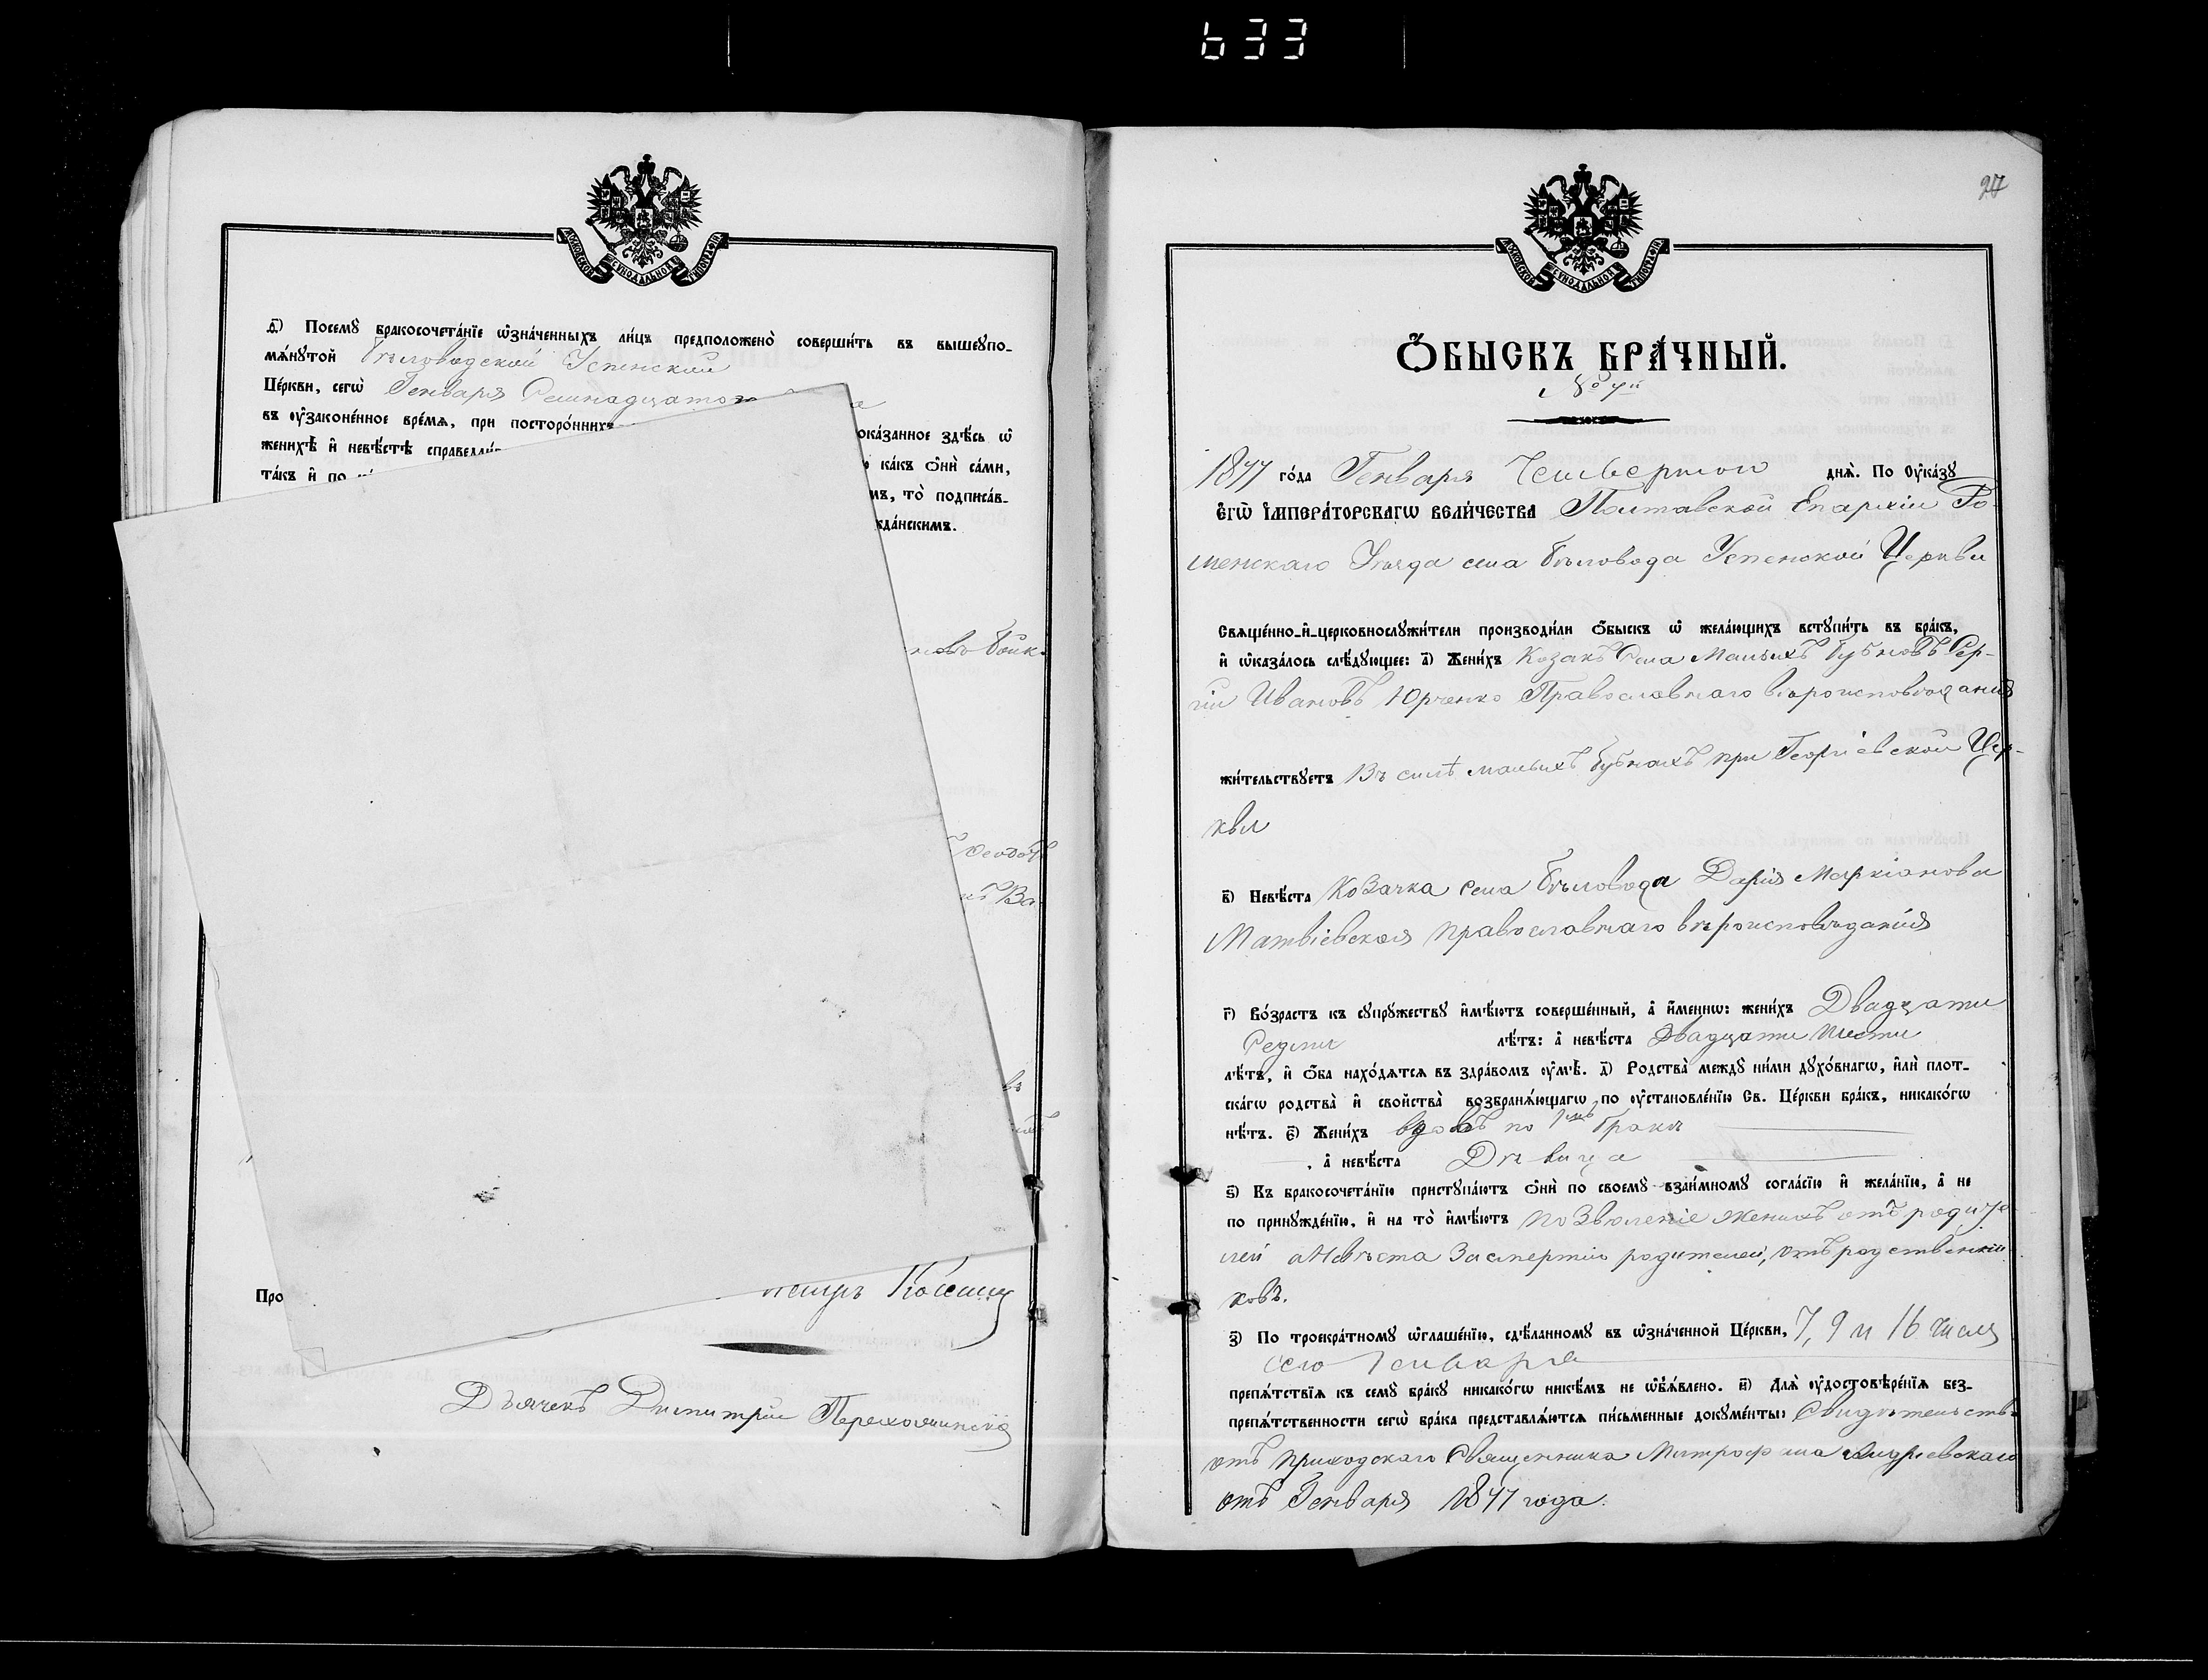 633
МОСКОВСКОЙ СѴНОДАЛЬНОЙ ТИПОГРАФІИ
д҃) Посемꙋ̀ бракосочета́нїе ѡ҆зна́ченныхъ ли́цъ предположено̀ соверши́ть въ вышеꙋпо-
мѧ́нутой Бѣловодской Успенской
Це́ркви, сегѡ̀ Генваря Семнадцатого
въ ᲂу҆законе́нное вре́мѧ, при посторо́ннихъ
ока́занное здѣ́сь ѡ҆
женихѣ̀ и҆ невѣ́стѣ справедли́
ка́къ ѻ҆нѝ са́ми,
та́къ и҆ по
мъ, то̀ подписа́в-
жда́нскимъ.
Ва-
Про
Коссичъ
Дьячекъ Димитрій
МОСКОВСКОЙ СѴНОДАЛЬНОЙ ТИПОГРАФІИ
27
Ѻ҆БЫСКЪ БРА́ЧНЫЙ.
№ 7й
1877 го́да Генваря Четвертого днѧ̀. По Оу҆ка́зꙋ
Є҆ГѠ̀ И҆МПЕРА́ТОРСКАГѠ ВЕЛИ́ЧЕСТВА Полтавской Епархіи Ро-
менскаго Уѣзда села Бѣловода Успенской Церкви
Свѧще́нно-и҆-церковнослꙋжи́тели производи́ли ѻ҆́быскъ ѡ҆ жела́ющихъ встꙋпи́ть въ бра́къ,
и҆ ѡ҆каза́лось слѣ́дꙋющее: а҃) Жени́хъ Козакъ Села Малыхъ Бубновъ Сер-
гій Ивановъ Юрченко Православнаго вѣроисповѣданія
жи́тельствꙋетъ Въ селѣ малыхъ Бубнахъ при Георгіевской Цер-
кви
в҃) Невѣ́ста Козачка села Бѣловода Дарія Маркіанова
Матвіевская православнаго вѣроисповѣданія
г҃) Во́зрастъ къ сꙋпрꙋ́жествꙋ и҆мѣ́ютъ соверше́нный, а҆ и҆́меннѡ: жени́хъ Двадцати
Седми лѣ́тъ: а҆ невѣ́ста Двадцати шести
лѣ́тъ, и҆ ѻ҆́ба нахо́дѧтсѧ въ здра́вомъ ᲂу҆мѣ̀. д҃) Родства̀ междꙋ̀ ни́ми дꙋхо́внагѡ, и҆лѝ плот-
ска́гѡ родства̀ и҆ сво́йства̀ возбранѧ́ющагѡ по ᲂу҆становле́нїю Св. Це́ркви бра́къ, никако́гѡ
нѣ́тъ. є҃) Жени́хъ вдовъ по 1мъ бракѣ
, а҆ невѣ́ста Дѣвица
ѕ҃) Къ бракосочета́нїю пристꙋпа́ютъ ѻ҆нѝ по своемꙋ̀ взаи́мномꙋ согла́сїю и҆ жела́нїю, а҆ не
по принꙋжде́нїю, и҆ на то̀ и҆мѣ́ютъ позволеніе женихъ отъ родите
лей а Невѣста за смертію родителей, отъ родственни
ковъ.
з҃) По троекра́тномꙋ ѡ҆глаше́нїю, сдѣ́ланномꙋ въ ѡ҆зна́ченной Це́ркви, 7, 9 и 16 числъ
сего Генваря
препѧ́тствїѧ къ семꙋ̀ бра́кꙋ никако́гѡ никѣ́мъ не ѡ҆б̾ѧ́влено. и҃) Длѧ̀ ᲂу҆достовѣ́ренїѧ без-
препѧ́тственности сегѡ̀ бра́ка представлѧ́ютсѧ пи́сьменные докꙋме́нты: Свидѣтельство
отъ приходскаго Священника Митрофана Андріевскаго
отъ Генваря 1877 года.